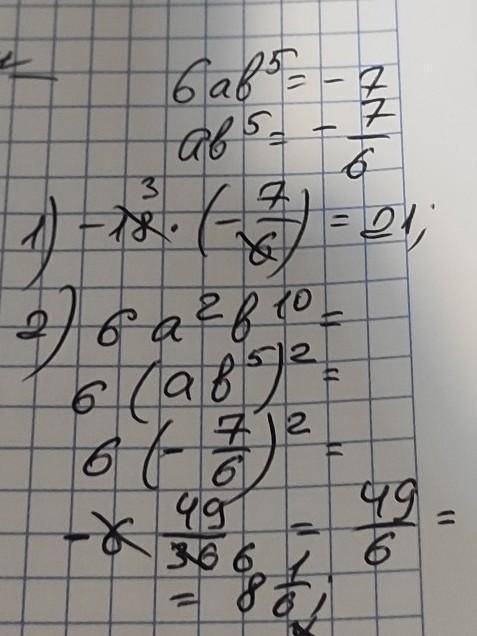 6ab⁵ = - 7
ab⁵ = - 7/6
1) -18 · (- 7/6) = 21;
3
2) 6 a² b¹⁰ =
6 (ab⁵)² =
6 (- 7/6)² =
-6 49/36 6 = 49/6 =
= 8 1/6;